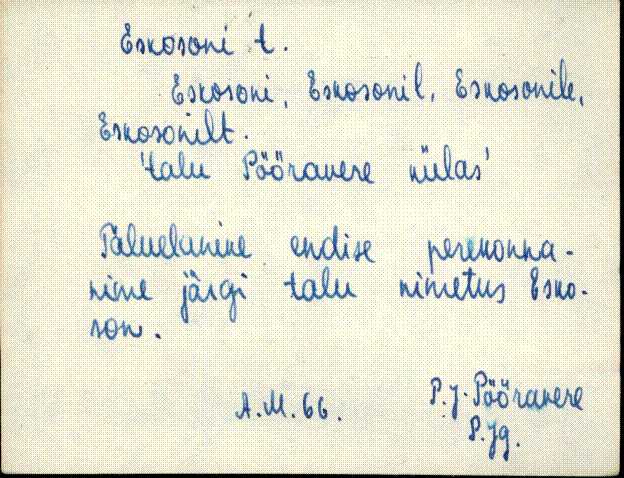 Eskosoni t.
Eskosoni, Eskosonil, Eskosonile,
Eskosonilt.
'talu Pööravere külas'
Päluelanike endise perekonna-
nime järgi talu nimetus Esko-
son.
A.M. 66.
P.J. Pööravere
P.Jg.